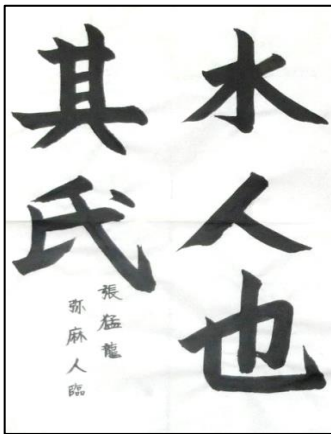 水人也
其氏
張猛龍
弥麻人臨